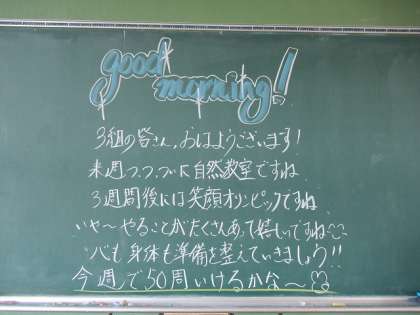 good
morning!
3組の皆さん、おはようございます!
来週つ、つ、ついに自然教室ですね
3週間後には笑顔オリンピックですね
いや〜やることがたくさんあって嬉しいですね
心も身体も準備を整えていきましょう!!
今週で50周いけるかな〜